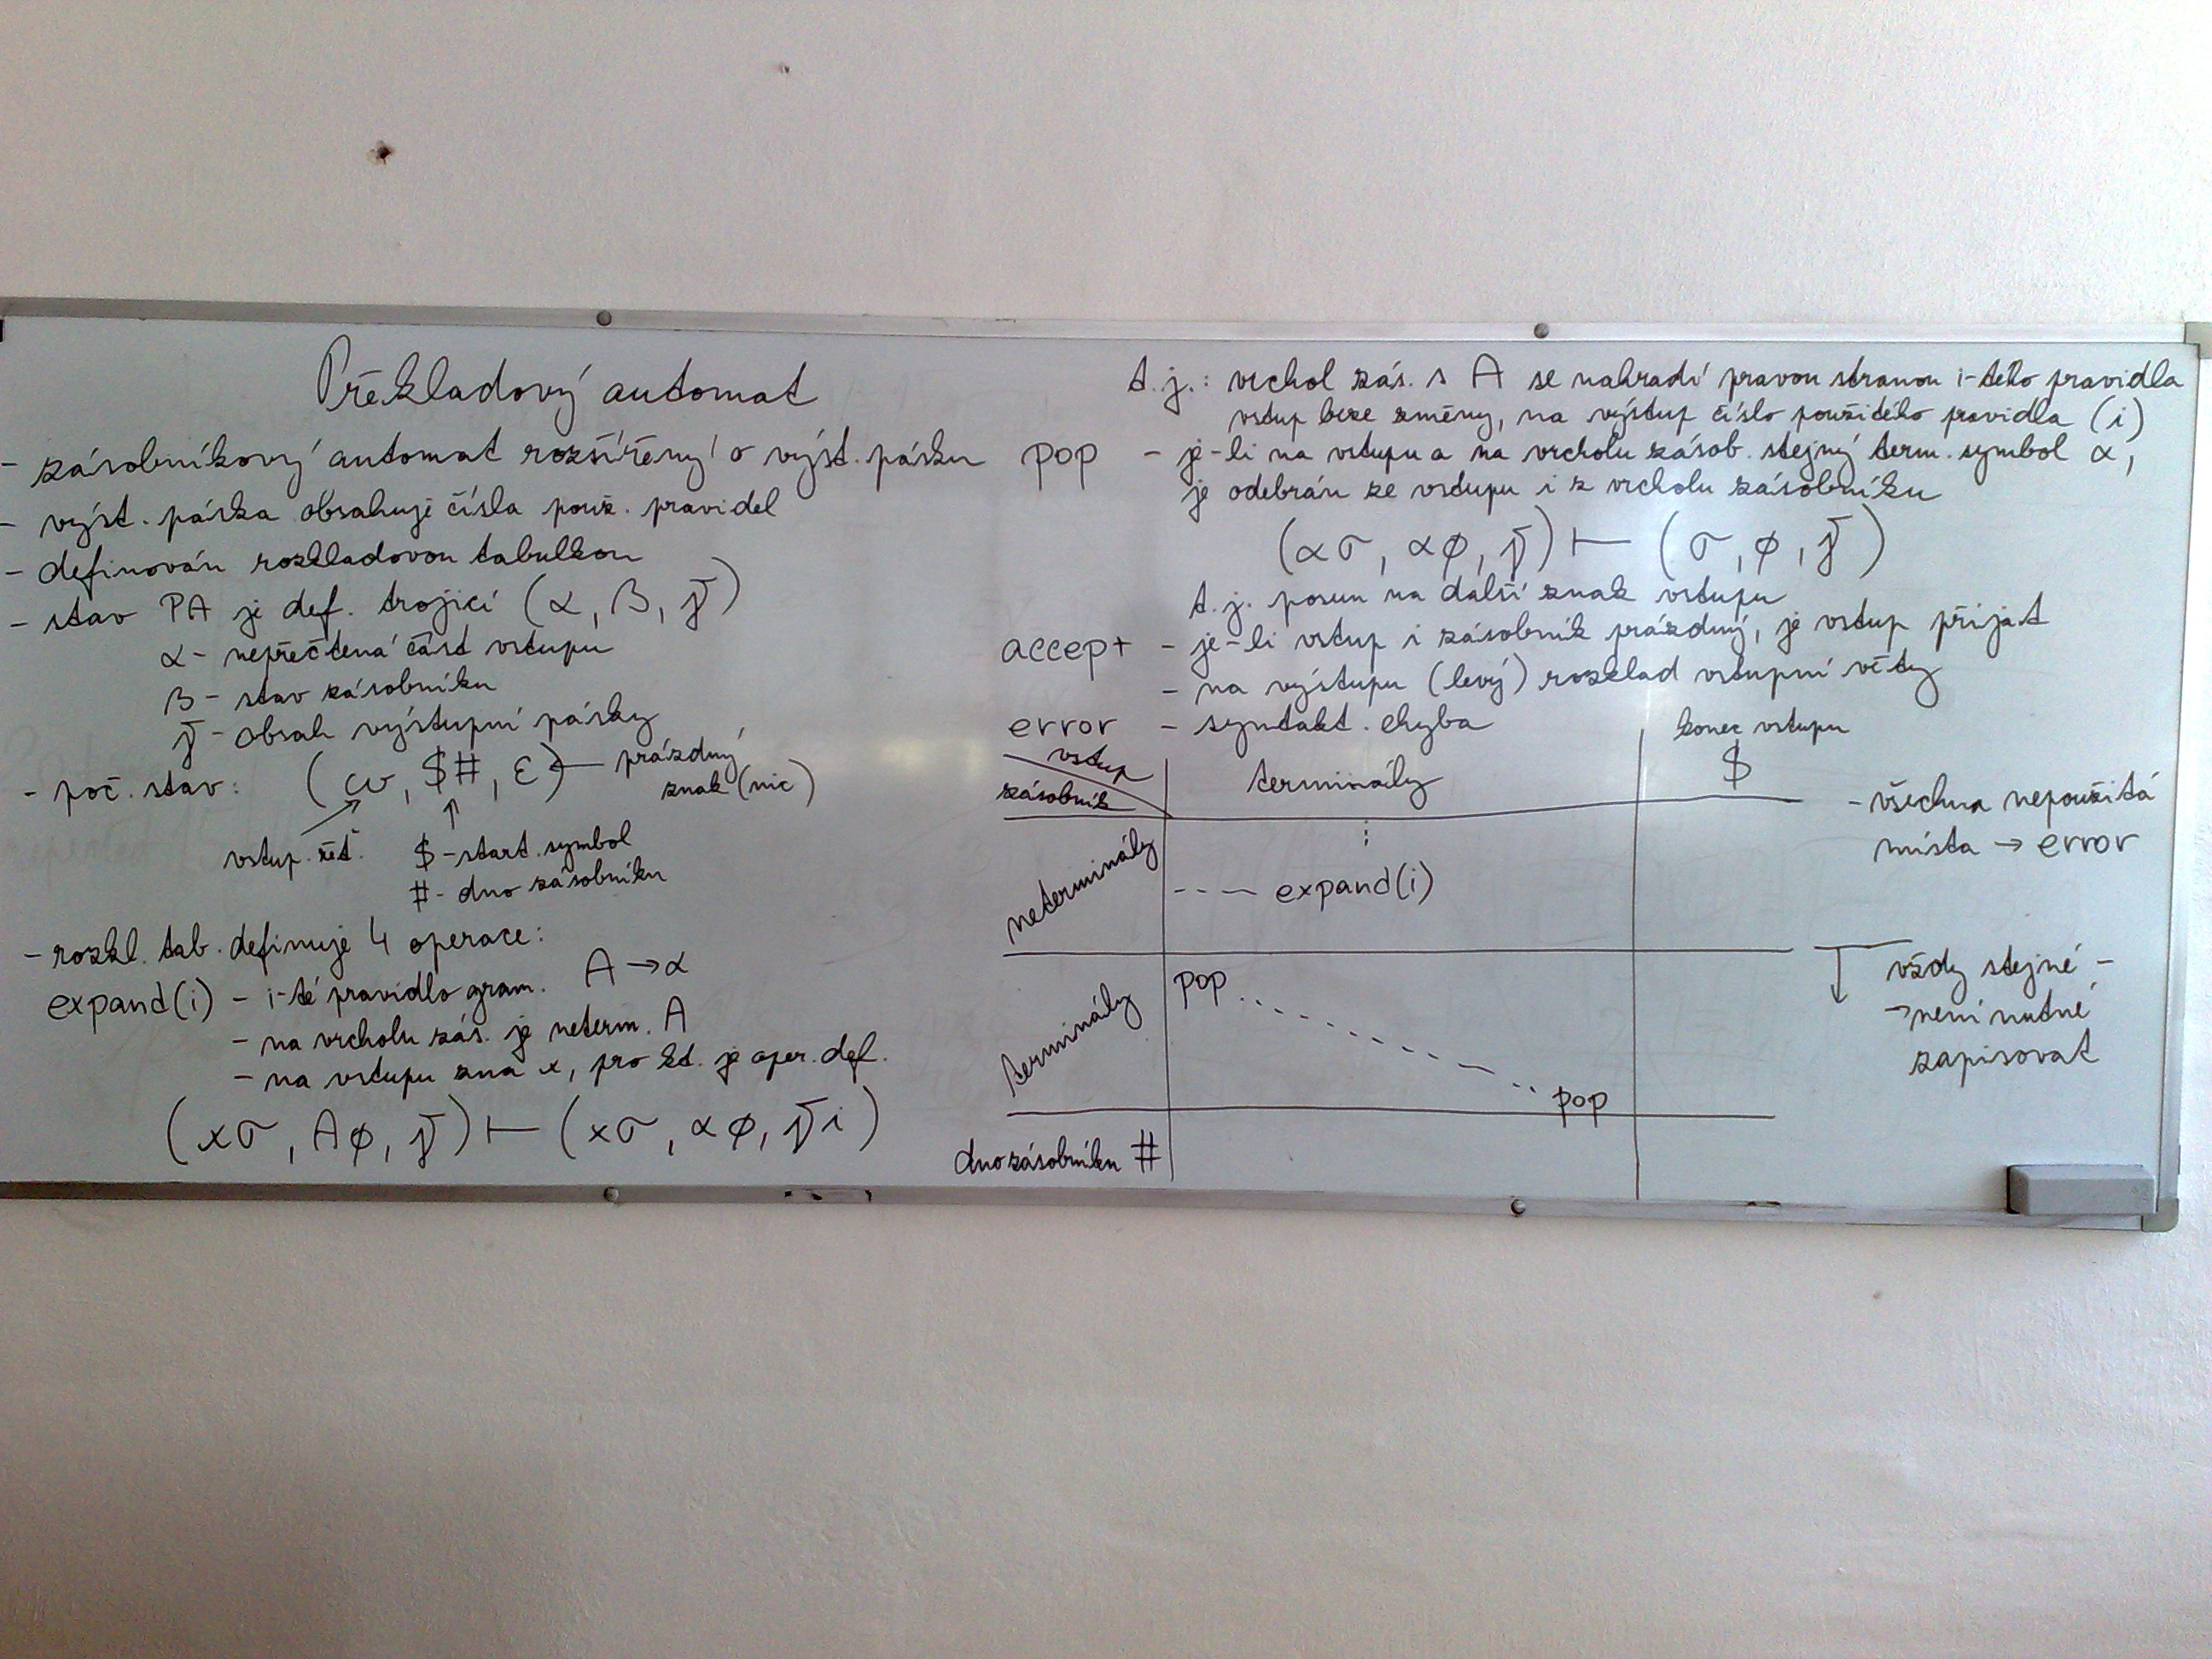 Překladový automat
- zásobníkový automat rozšířený o výst. pásku
- výst. páska obsahuje čísla použ. pravidel
- definován rozkladovou tabulkou
- stav PA je def. trojicí (α, β, γ)
α - nepřečtená část vstupu
β - stav zásobníku
γ - obsah výstupní pásky
- poč. stav: (ω, $#, ε) ← prázdný
znak (nic)
vstup. řet. $ - start. symbol
# - dno zásobníku
- rozkl. tab. definuje 4 operace:
expand(i) - i-té pravidlo gram. A → α
- na vrcholu zás. je neterm. A
- na vstupu zna x, pro kt. je oper. def.
(xσ, Aφ, γ) ⊢ (xσ, αφ, γi)
t.j.: vrchol zás. s A se nahradí pravou stranou i-tého pravidla
vstup beze změny, na výstup číslo použitého pravidla (i)
pop - je-li na vstupu a na vrcholu zásob. stejný term. symbol α,
je odebrán ze vstupu i z vrcholu zásobníku
(ασ, αφ, γ) ⊢ (σ, φ, γ)
t.j. posun na další znak vstupu
accept - je-li vstup i zásobník prázdný, je vstup přijat
- na výstupu (levý) rozklad vstupní věty
error - syntakt. chyba
konec vstupu
vstup
zásobník
terminály
$
neterminály
expand(i)
terminály
pop
pop
dno zásobníku #
- všechna nepoužitá
místa → error
vždy stejné -
→ není nutné
zapisovat